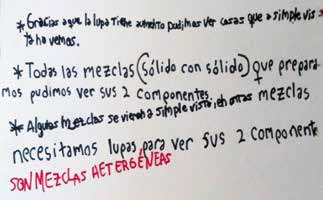 *Gracias a que la lupa tiene aumento pudimos ver cosas que a simple vis
ta no vemos.
*Todas las mezclas (Sólido con sólido) que prepara
mos pudimos ver sus 2 componentes.
*Algunas mezclas se vieron a simple vista, en otras mezclas
necesitamos lupas para ver sus 2 component
SON MEZCLAS HETERGÉNEAS